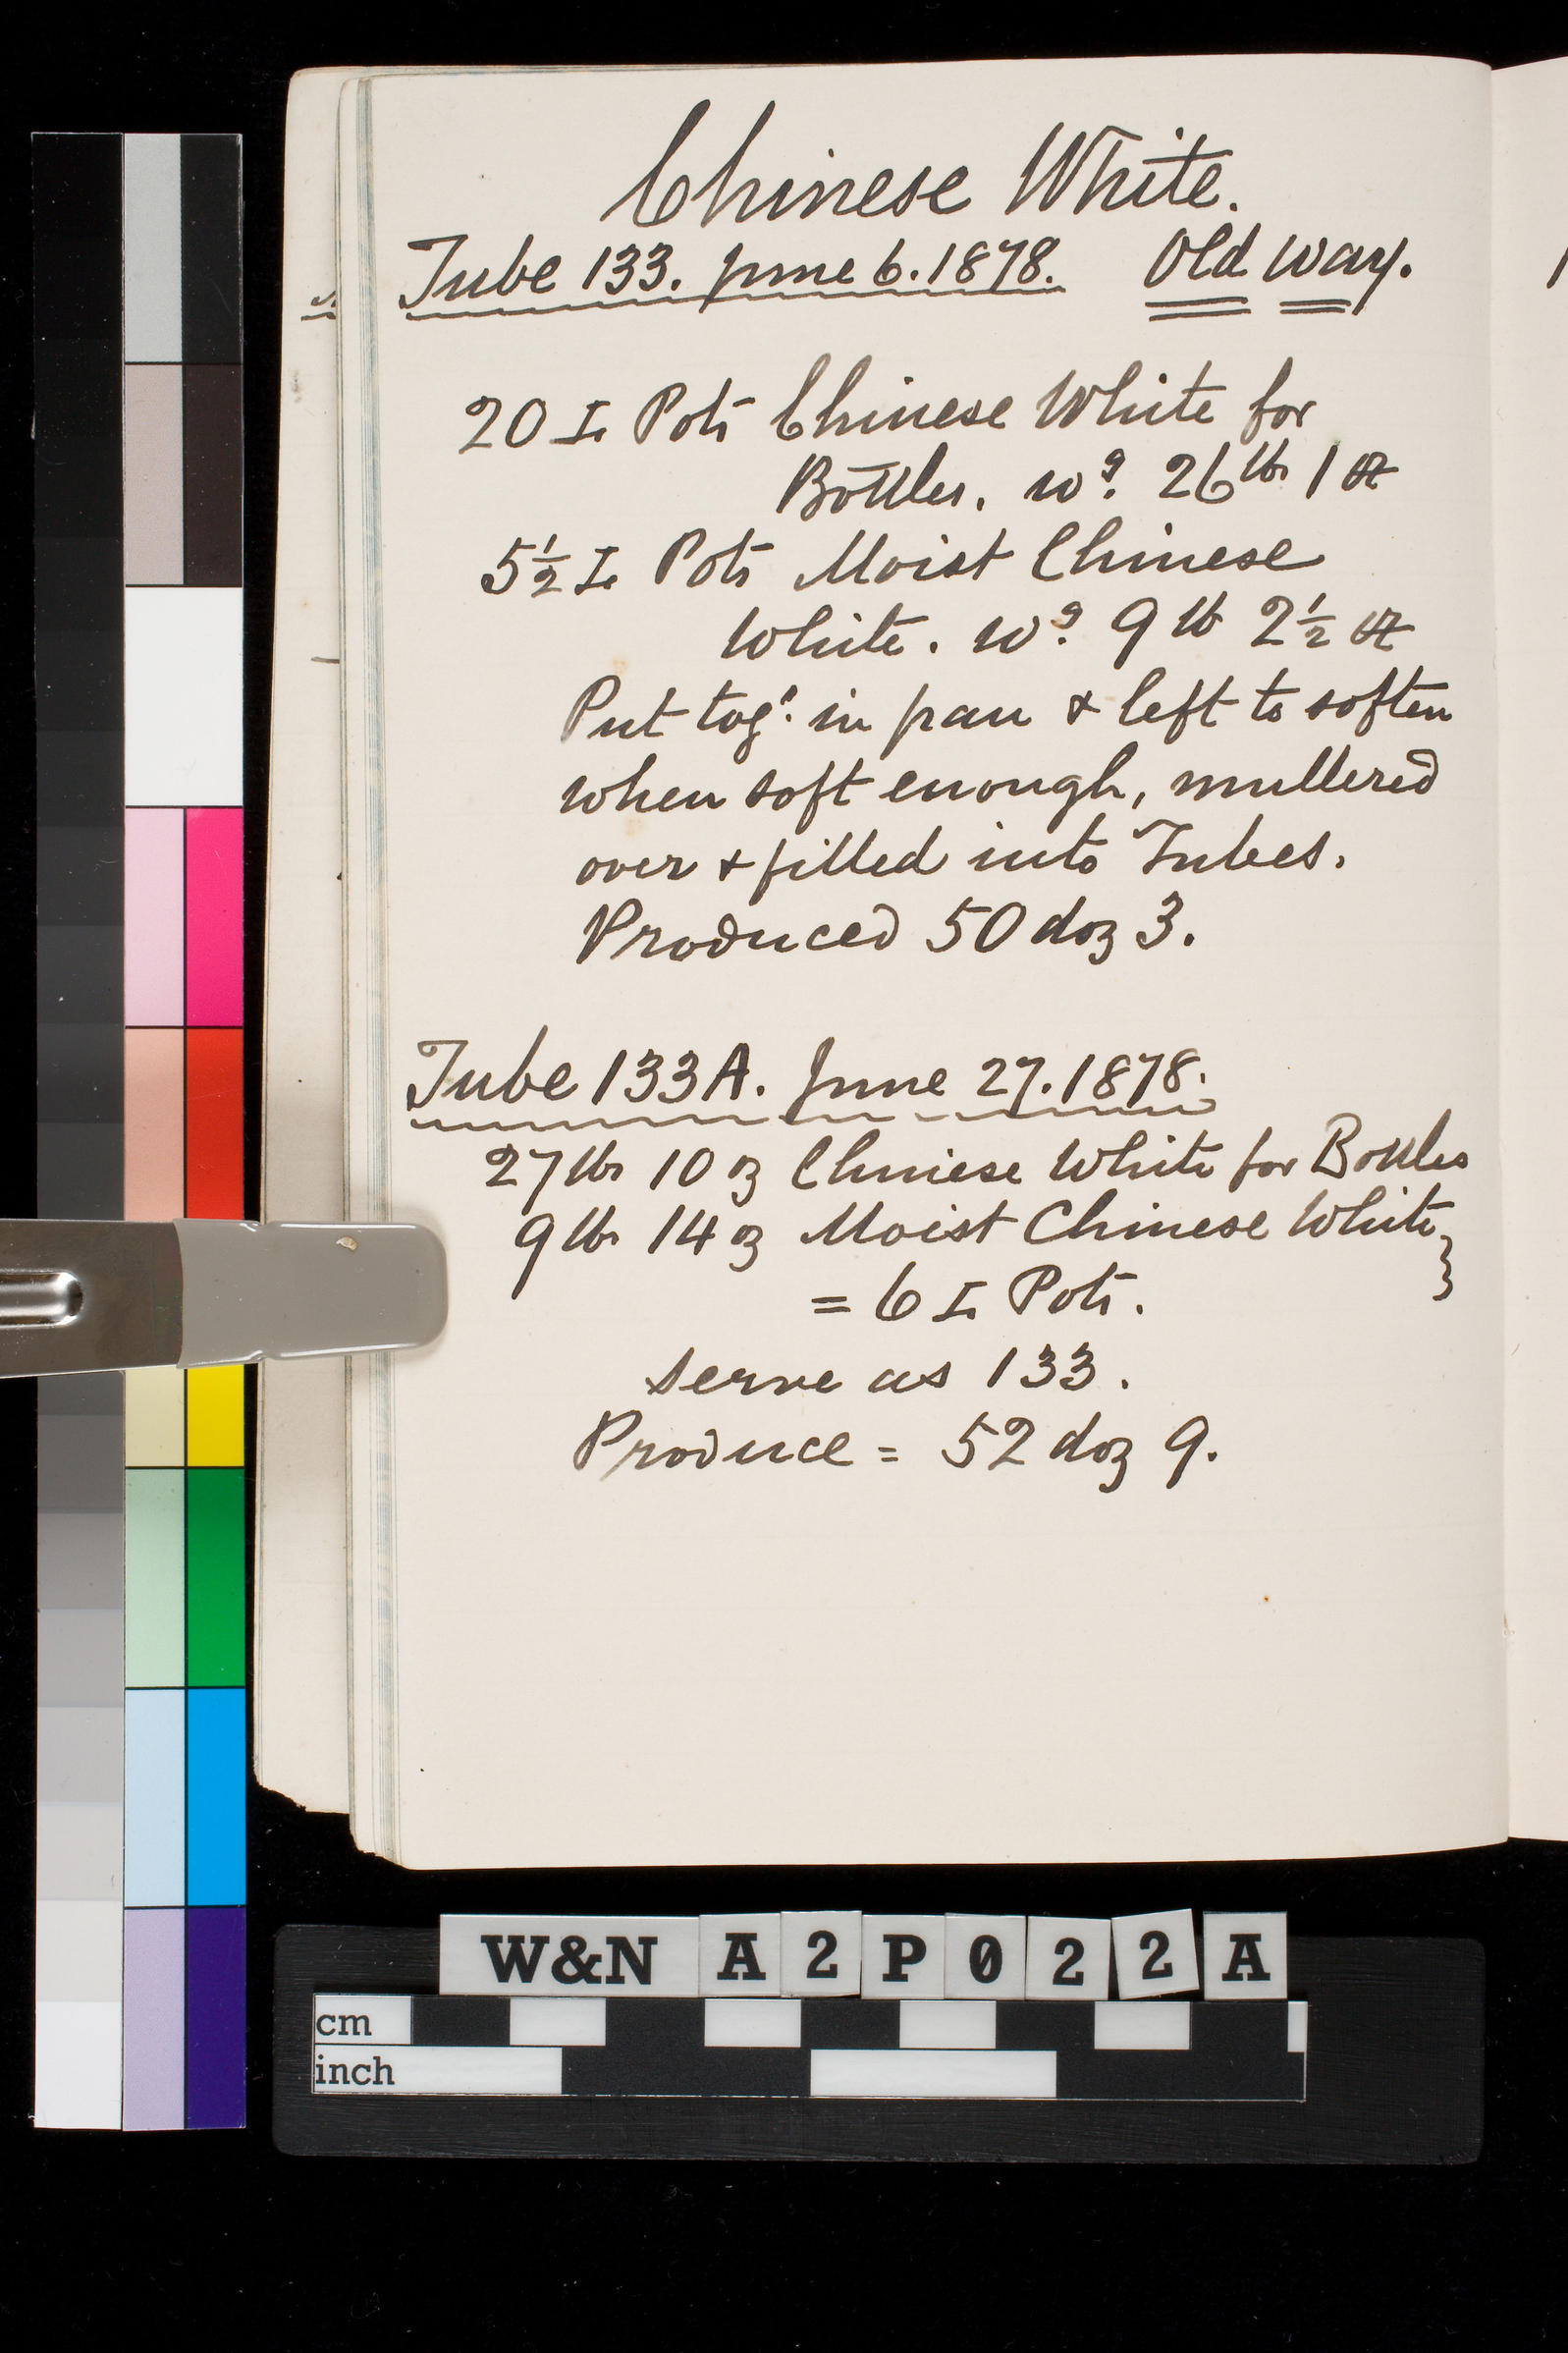 Chinese White.
Tube 133. June 6. 1878. Old Way.
20 I. Pots Chinese White for
Bottles. wg. 26 lbs 1 oz
5½ I. Pots Moist Chinese
White. wg. 9 lb 2½ oz
Put togr. in pan & left to soften
when soft enough, mullered
over & filled into Tubes.
Produced 50 doz 3.
Tube 133A. June 27. 1878.
27 lbs 10 oz Chinese White for Bottles
9 lbs 14 oz Moist Chinese White }
= 6 I. Pots.
serve as 133.
Produce = 52 doz 9.
W&N A2P022A
cm
inch